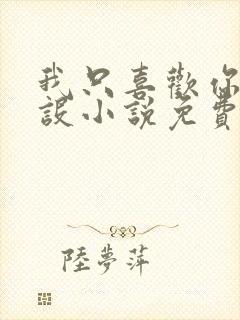 我只喜歡你
設小說免費
陸夢萍